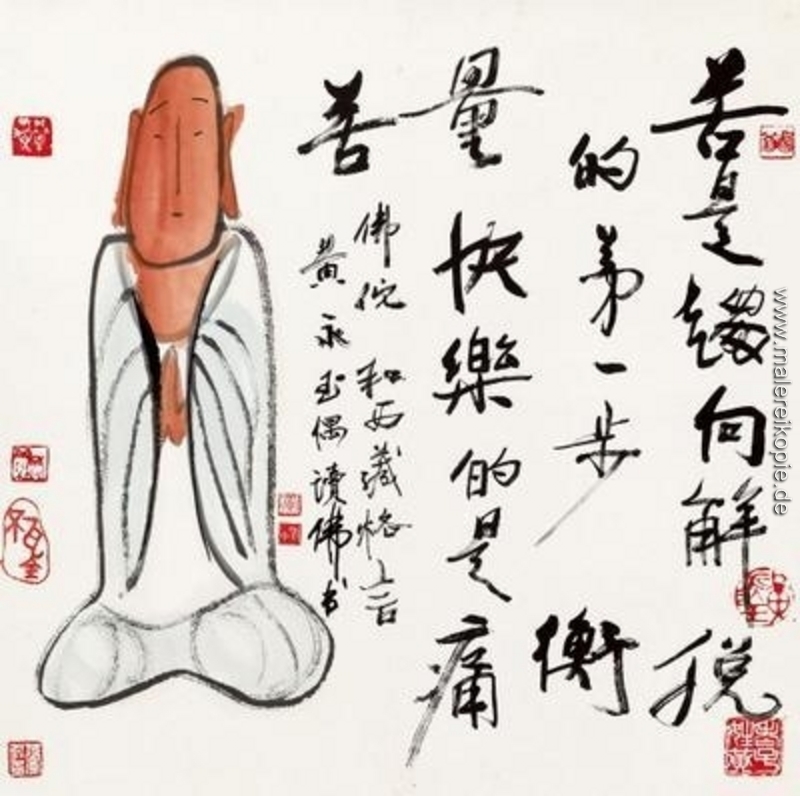 苦是趨向解脱
的第一步衡
量快樂的是痛
苦
佛偈和西藏格言
黄永玉偶讀佛書
www.malereikopie.de